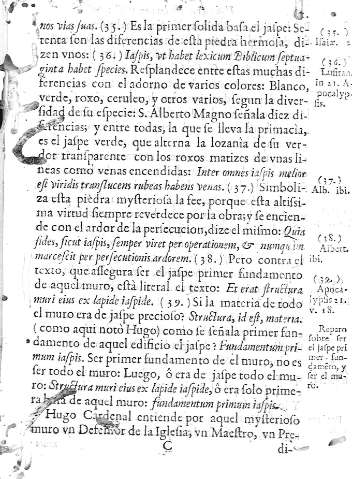 nos vias suas. (35.) Es la primer solida basa el jaspe: Se-
tenta son las diferencias de esta piedra hermosa, di-
zen vnos: (36.) Iaspis, vt habet lexicum Biblicum septua-
ginta habet species. Resplandece entre estas muchas di-
ferencias con el adorno de varios colores: Blanco,
verde, roxo, ceruleo, y otros varios, segun la diver-
sidad de su especie: S. Alberto Magno señala diez di-
ferencias; y entre todas, la que se lleva la primacia,
es el jaspe verde, que alterna la lozania de su ver-
dor transparente con los roxos matizes de vnas li-
neas como venas encendidas: Inter omnes iaspis melior
est viridis translucens rubeas habens venas. (37.) Simboli-
za esta piedra mysteriosa la fee, porque esta altissi-
ma virtud siempre reverdece por la obra; y se encien-
de con el ardor de la persecucion, dize el mismo: Quia
fides, sicut iaspis, semper viret per operationem, & nunquam
marcescit per persecutionis ardorem. (38.) Pero contra el
texto, que assegura ser el jaspe primer fundamento
de aquel muro, està literal el texto: Et erat structura
muri eius ex lapide iaspide. (39.) Si la materia de todo
el muro era de jaspe precioso? Structura, id est, materia.
(como aqui notò Hugo) como se señala primer fun-
damento de aquel edificio el jaspe? Fundamentum pri-
mum iaspis. Ser primer fundamento de el muro, no es
ser todo el muro: Luego, ò era de jaspe todo el mu-
ro: Structura muri eius ex lapide iaspide, ò era solo prime-
ra basa de aquel muro: fundamentum primum iaspis.
Hugo Cardenal entiende por aquel mysterioso
muro vn Defensor de la Iglesia, vn Maestro, vn Pre-
C
di-
(35.)
(36.)
in 21. A-
pocalyp-
sis.
(37.)
Alb. ibi.
(38.)
Albert.
ibi.
(39.)
Apoca-
lypsis 21.
v. 18.
Reparo
sobre ser
el jaspe pri
mer fun-
damẽto, y
ser el mu-
ro.